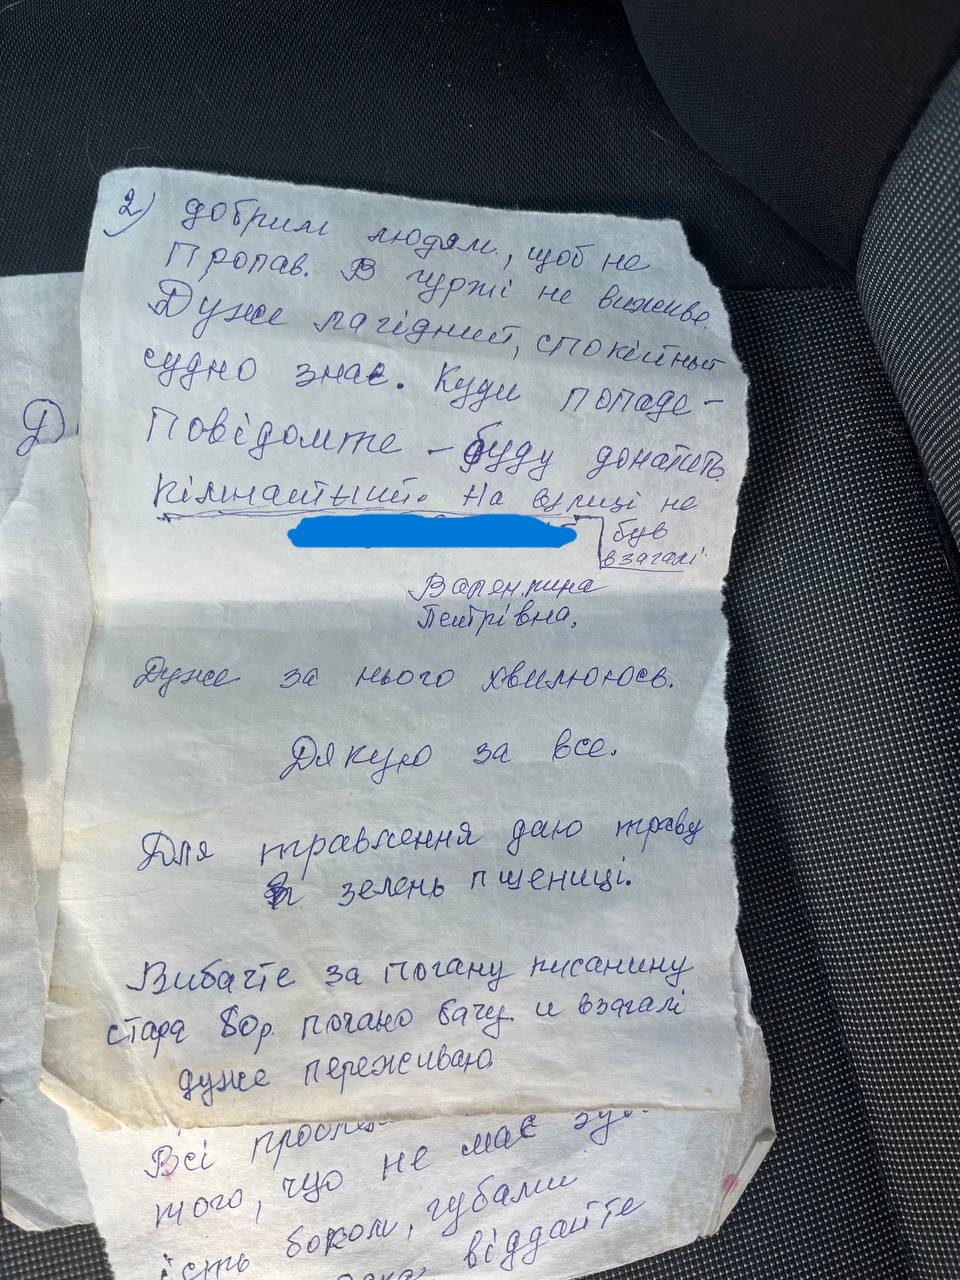 2) добрим людям, щоб не
пропав. В гуржі не виживе.
Дуже лагідний, спокійный
судно знає. Куди попаде -
Повідомте - буду донатить
Кімнатный. На вулиці не
був
взагалі
Валентина
Петрівна.
Дуже за нього хвилююсь.
Дякую за все.
Для травлення даю траву
зелень пшениці.
Вибачте за погану писанину
стара 80р. погано бачу и взагалі
дуже переживаю
Д
Всі
того, що не має
їсть боком, губами
віддайте